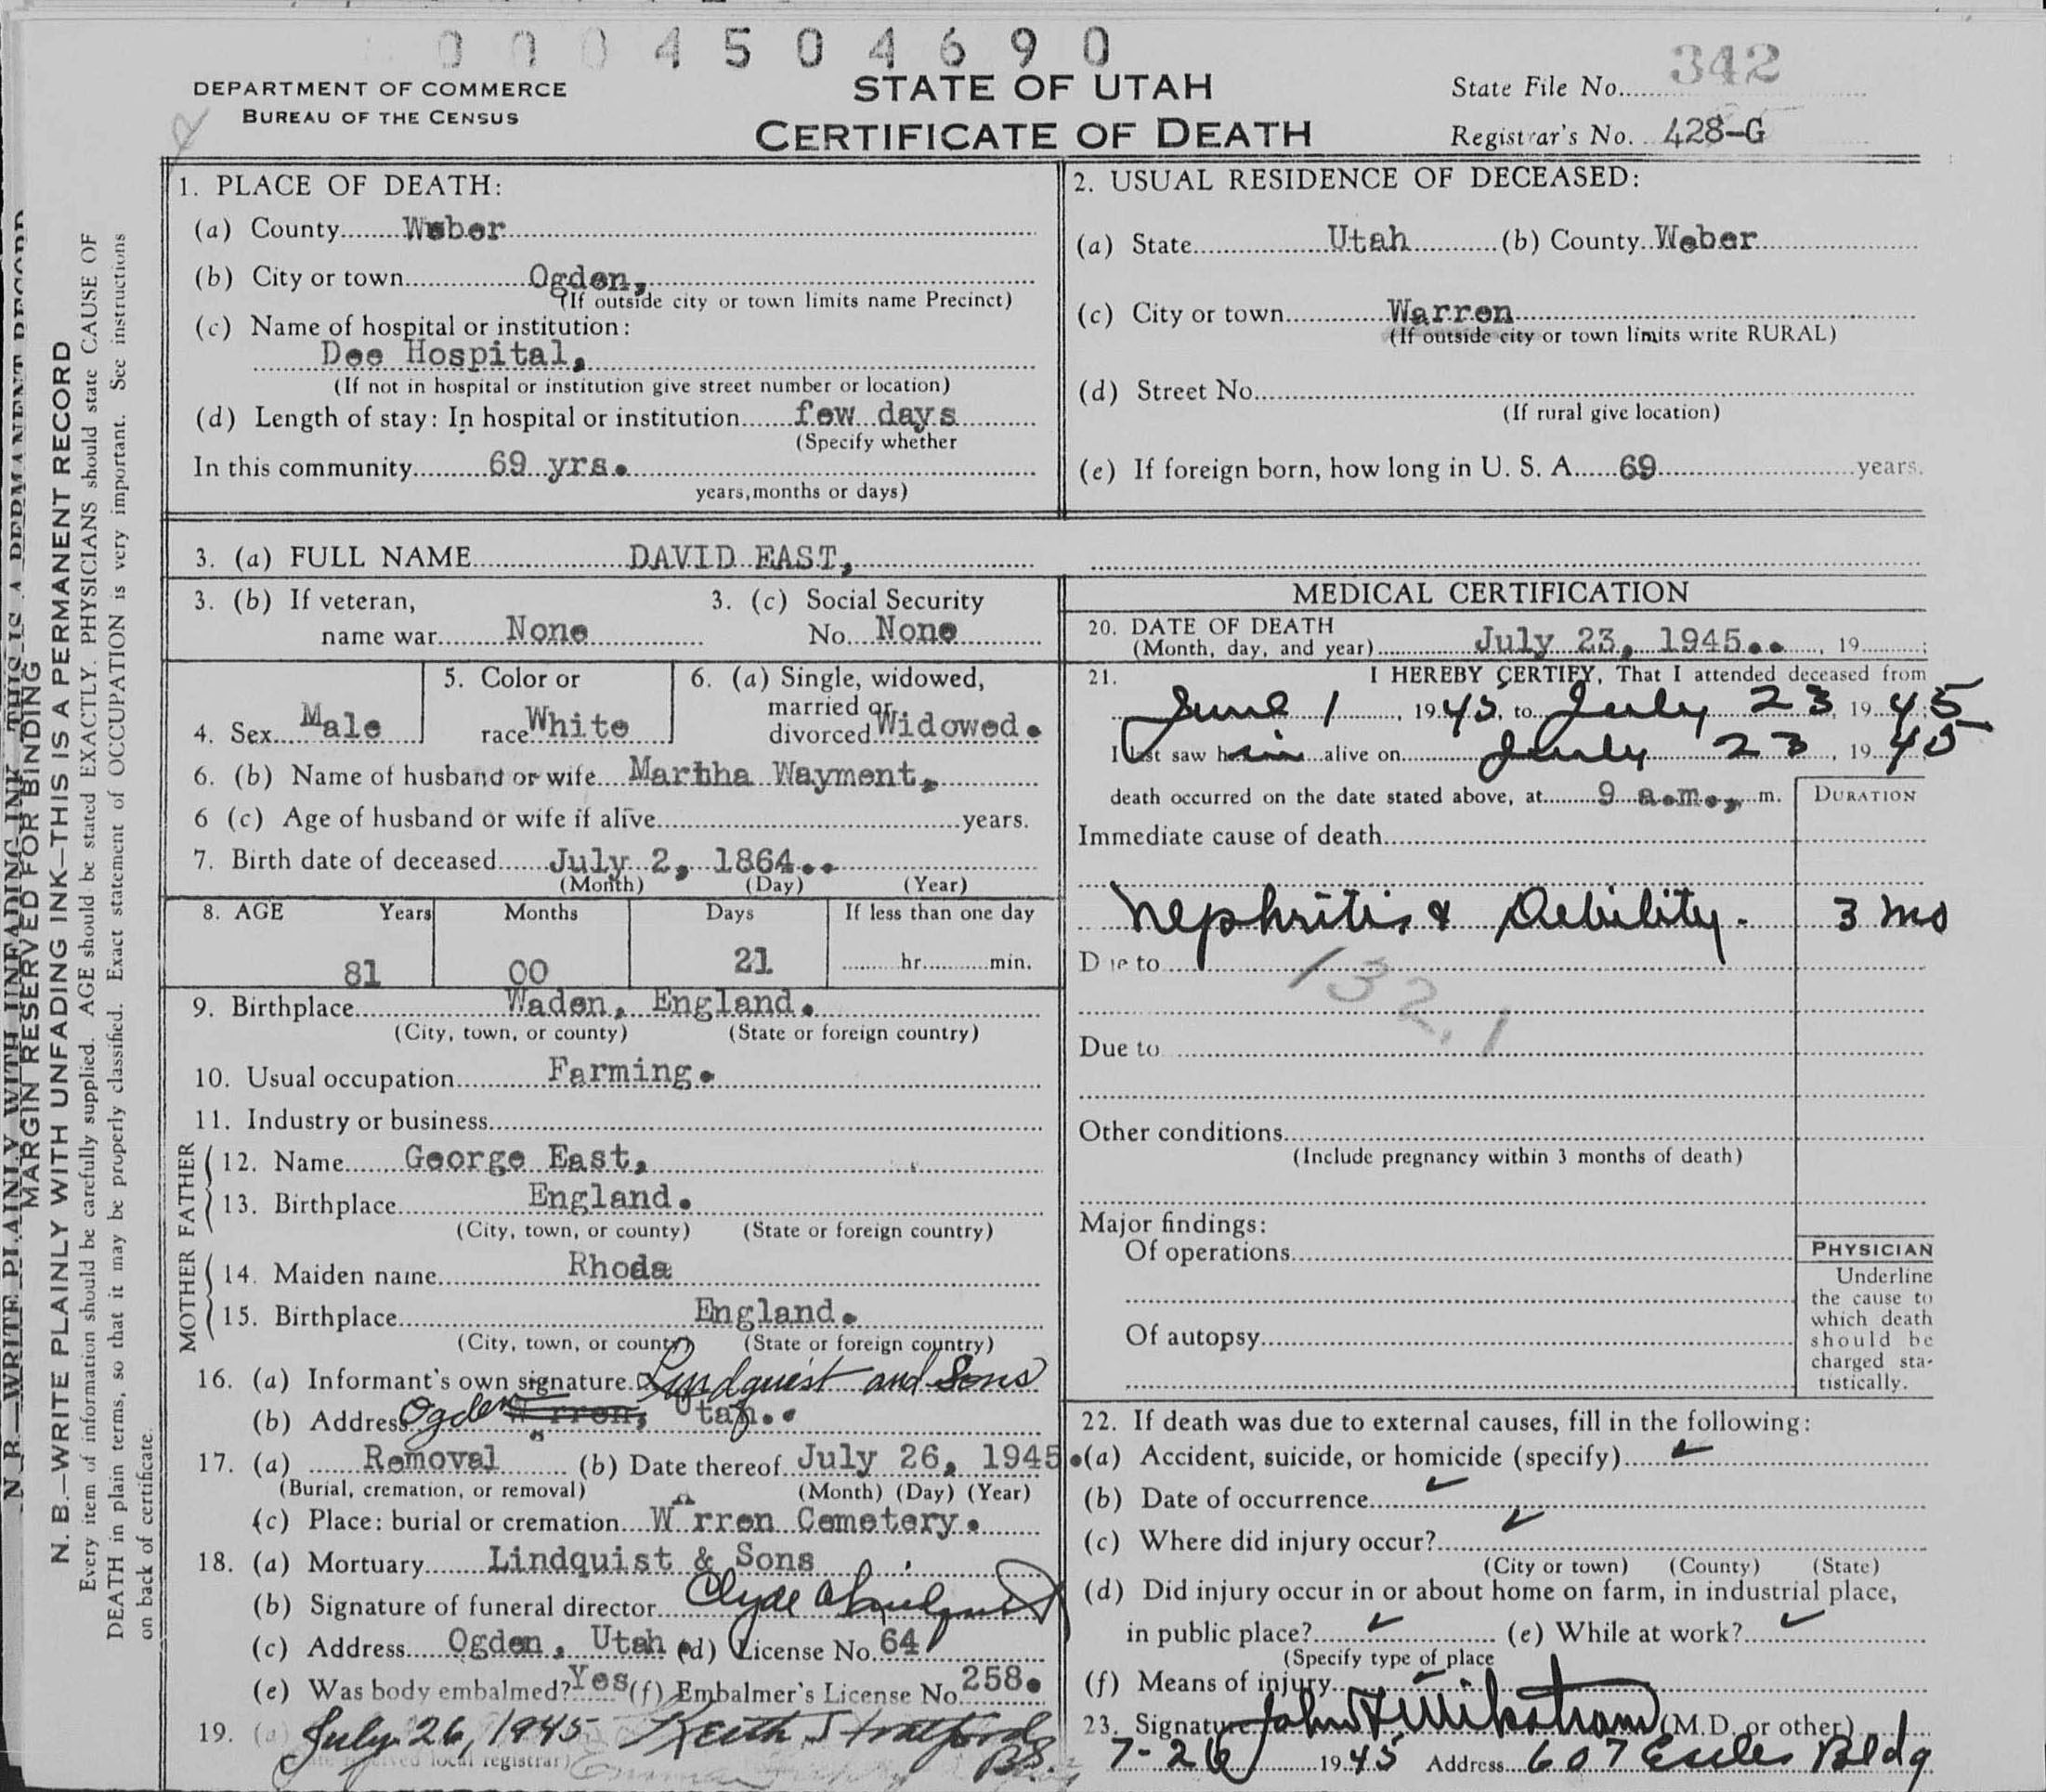 0 0 0 4 5 0 4 6 9 0
DEPARTMENT OF COMMERCE
BUREAU OF THE CENSUS
STATE OF UTAH
CERTIFICATE OF DEATH
State File No. 342
Registrar's No. 428-G
N. B.—WRITE PLAINLY WITH UNFADING INK—THIS IS A PERMANENT RECORD
MARGIN RESERVED FOR BINDING
N. B.—WRITE PLAINLY WITH UNFADING INK—THIS IS A PERMANENT RECORD
Every item of information should be carefully supplied. AGE should be stated EXACTLY. PHYSICIANS should state CAUSE OF
DEATH in plain terms, so that it may be properly classified. Exact statement of OCCUPATION is very important. See instructions
on back of certificate.
1. PLACE OF DEATH:
(a) County Weber
(b) City or town Ogden,
(If outside city or town limits name Precinct)
(c) Name of hospital or institution:
Dee Hospital,
(If not in hospital or institution give street number or location)
(d) Length of stay: In hospital or institution few days
(Specify whether
In this community 69 yrs.
years, months or days)
2. USUAL RESIDENCE OF DECEASED:
(a) State Utah (b) County Weber
(c) City or town Warren
(If outside city or town limits write RURAL)
(d) Street No.
(If rural give location)
(e) If foreign born, how long in U. S. A. 69 years.
3. (a) FULL NAME DAVID EAST,
3. (b) If veteran,
name war None
3. (c) Social Security
No. None
4. Sex Male
5. Color or
race White
6. (a) Single, widowed,
married or
divorced Widowed.
6. (b) Name of husband or wife Martha Wayment,
6 (c) Age of husband or wife if alive years.
7. Birth date of deceased July 2, 1864..
(Month) (Day) (Year)
8. AGE Years Months Days If less than one day
81 00 21 hr. min.
9. Birthplace Waden, England.
(City, town, or county) (State or foreign country)
10. Usual occupation Farming.
11. Industry or business
FATHER
12. Name George East,
13. Birthplace England.
(City, town, or county) (State or foreign country)
MOTHER
14. Maiden name Rhoda
15. Birthplace England.
(City, town, or county) (State or foreign country)
16. (a) Informant's own signature Lindquist and Sons
(b) Address Ogden Warren, Utah..
17. (a) Removal (b) Date thereof July 26, 1945.
(Burial, cremation, or removal) (Month) (Day) (Year)
(c) Place: burial or cremation Warren Cemetery.
18. (a) Mortuary Lindquist & Sons
(b) Signature of funeral director Clyde Lindquist
(c) Address Ogden, Utah. (d) License No. 64
(e) Was body embalmed? Yes (f) Embalmer's License No. 258.
19. (a) July 26, 1945 Keith Stratford
local registrar)
MEDICAL CERTIFICATION
20. DATE OF DEATH
(Month, day, and year) July 23, 1945.. , 19 ;
21. I HEREBY CERTIFY, That I attended deceased from
June 1, 1945, to July 23, 1945
I last saw him alive on July 23, 1945
death occurred on the date stated above, at 9 a.m., m.
DURATION
Immediate cause of death
Nephritis & Debility. 3 mo
Due to
132.1
Due to
Other conditions
(Include pregnancy within 3 months of death)
Major findings:
Of operations
Of autopsy
PHYSICIAN
Underline
the cause to
which death
should be
charged sta-
tistically.
22. If death was due to external causes, fill in the following:
(a) Accident, suicide, or homicide (specify) ✓
(b) Date of occurrence ✓
(c) Where did injury occur? ✓
(City or town) (County) (State)
(d) Did injury occur in or about home on farm, in industrial place,
in public place? ✓ (e) While at work? ✓
(Specify type of place
(f) Means of injury
23. Signature John F. Wikstrom (M.D. or other)
7-26 1945 Address 607 Eccles Bldg